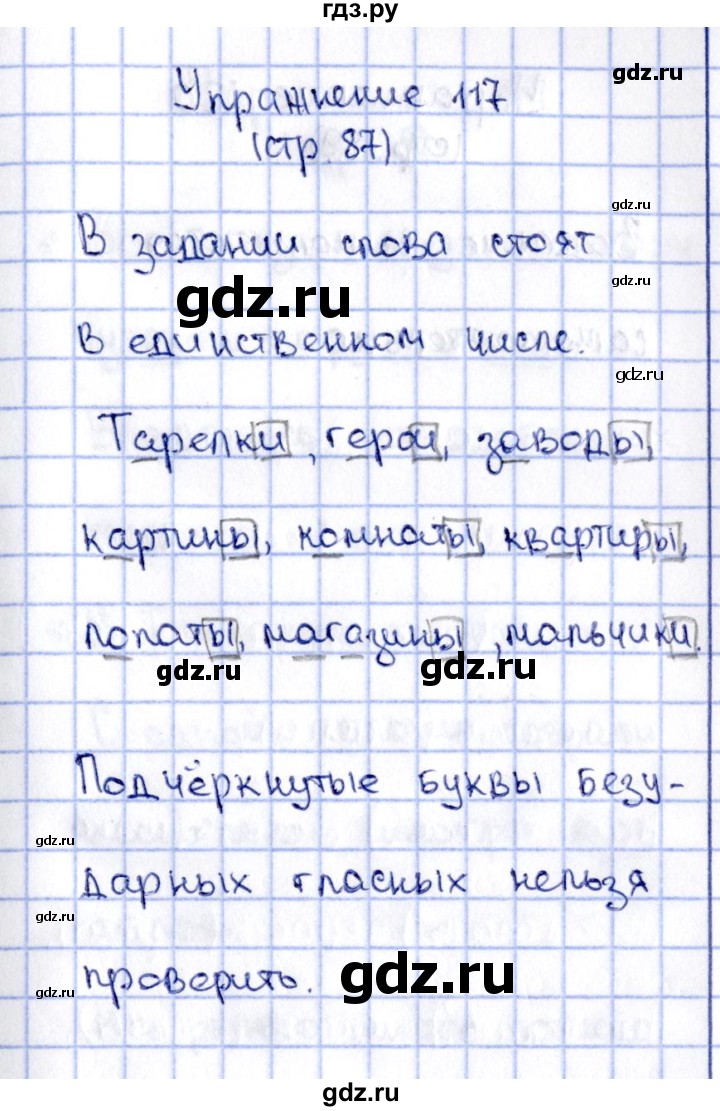 гдз.ру
gdz.ru
Упражнение 117
(стр. 87)
gdz.ru
В задании слова стоят
gdz.ru
gdz.ru
в единственном числе.
gdz.ru
Тарелки, герои, заводы,
картины, комнаты, квартиры,
лопаты, магазины, мальчики.
gdz.ru
gdz.ru
Подчёркнутые буквы безу-
gdz.ru
дарных гласных нельзя
gdz.ru
проверить.
gdz.ru
gdz.ru
gdz.ru